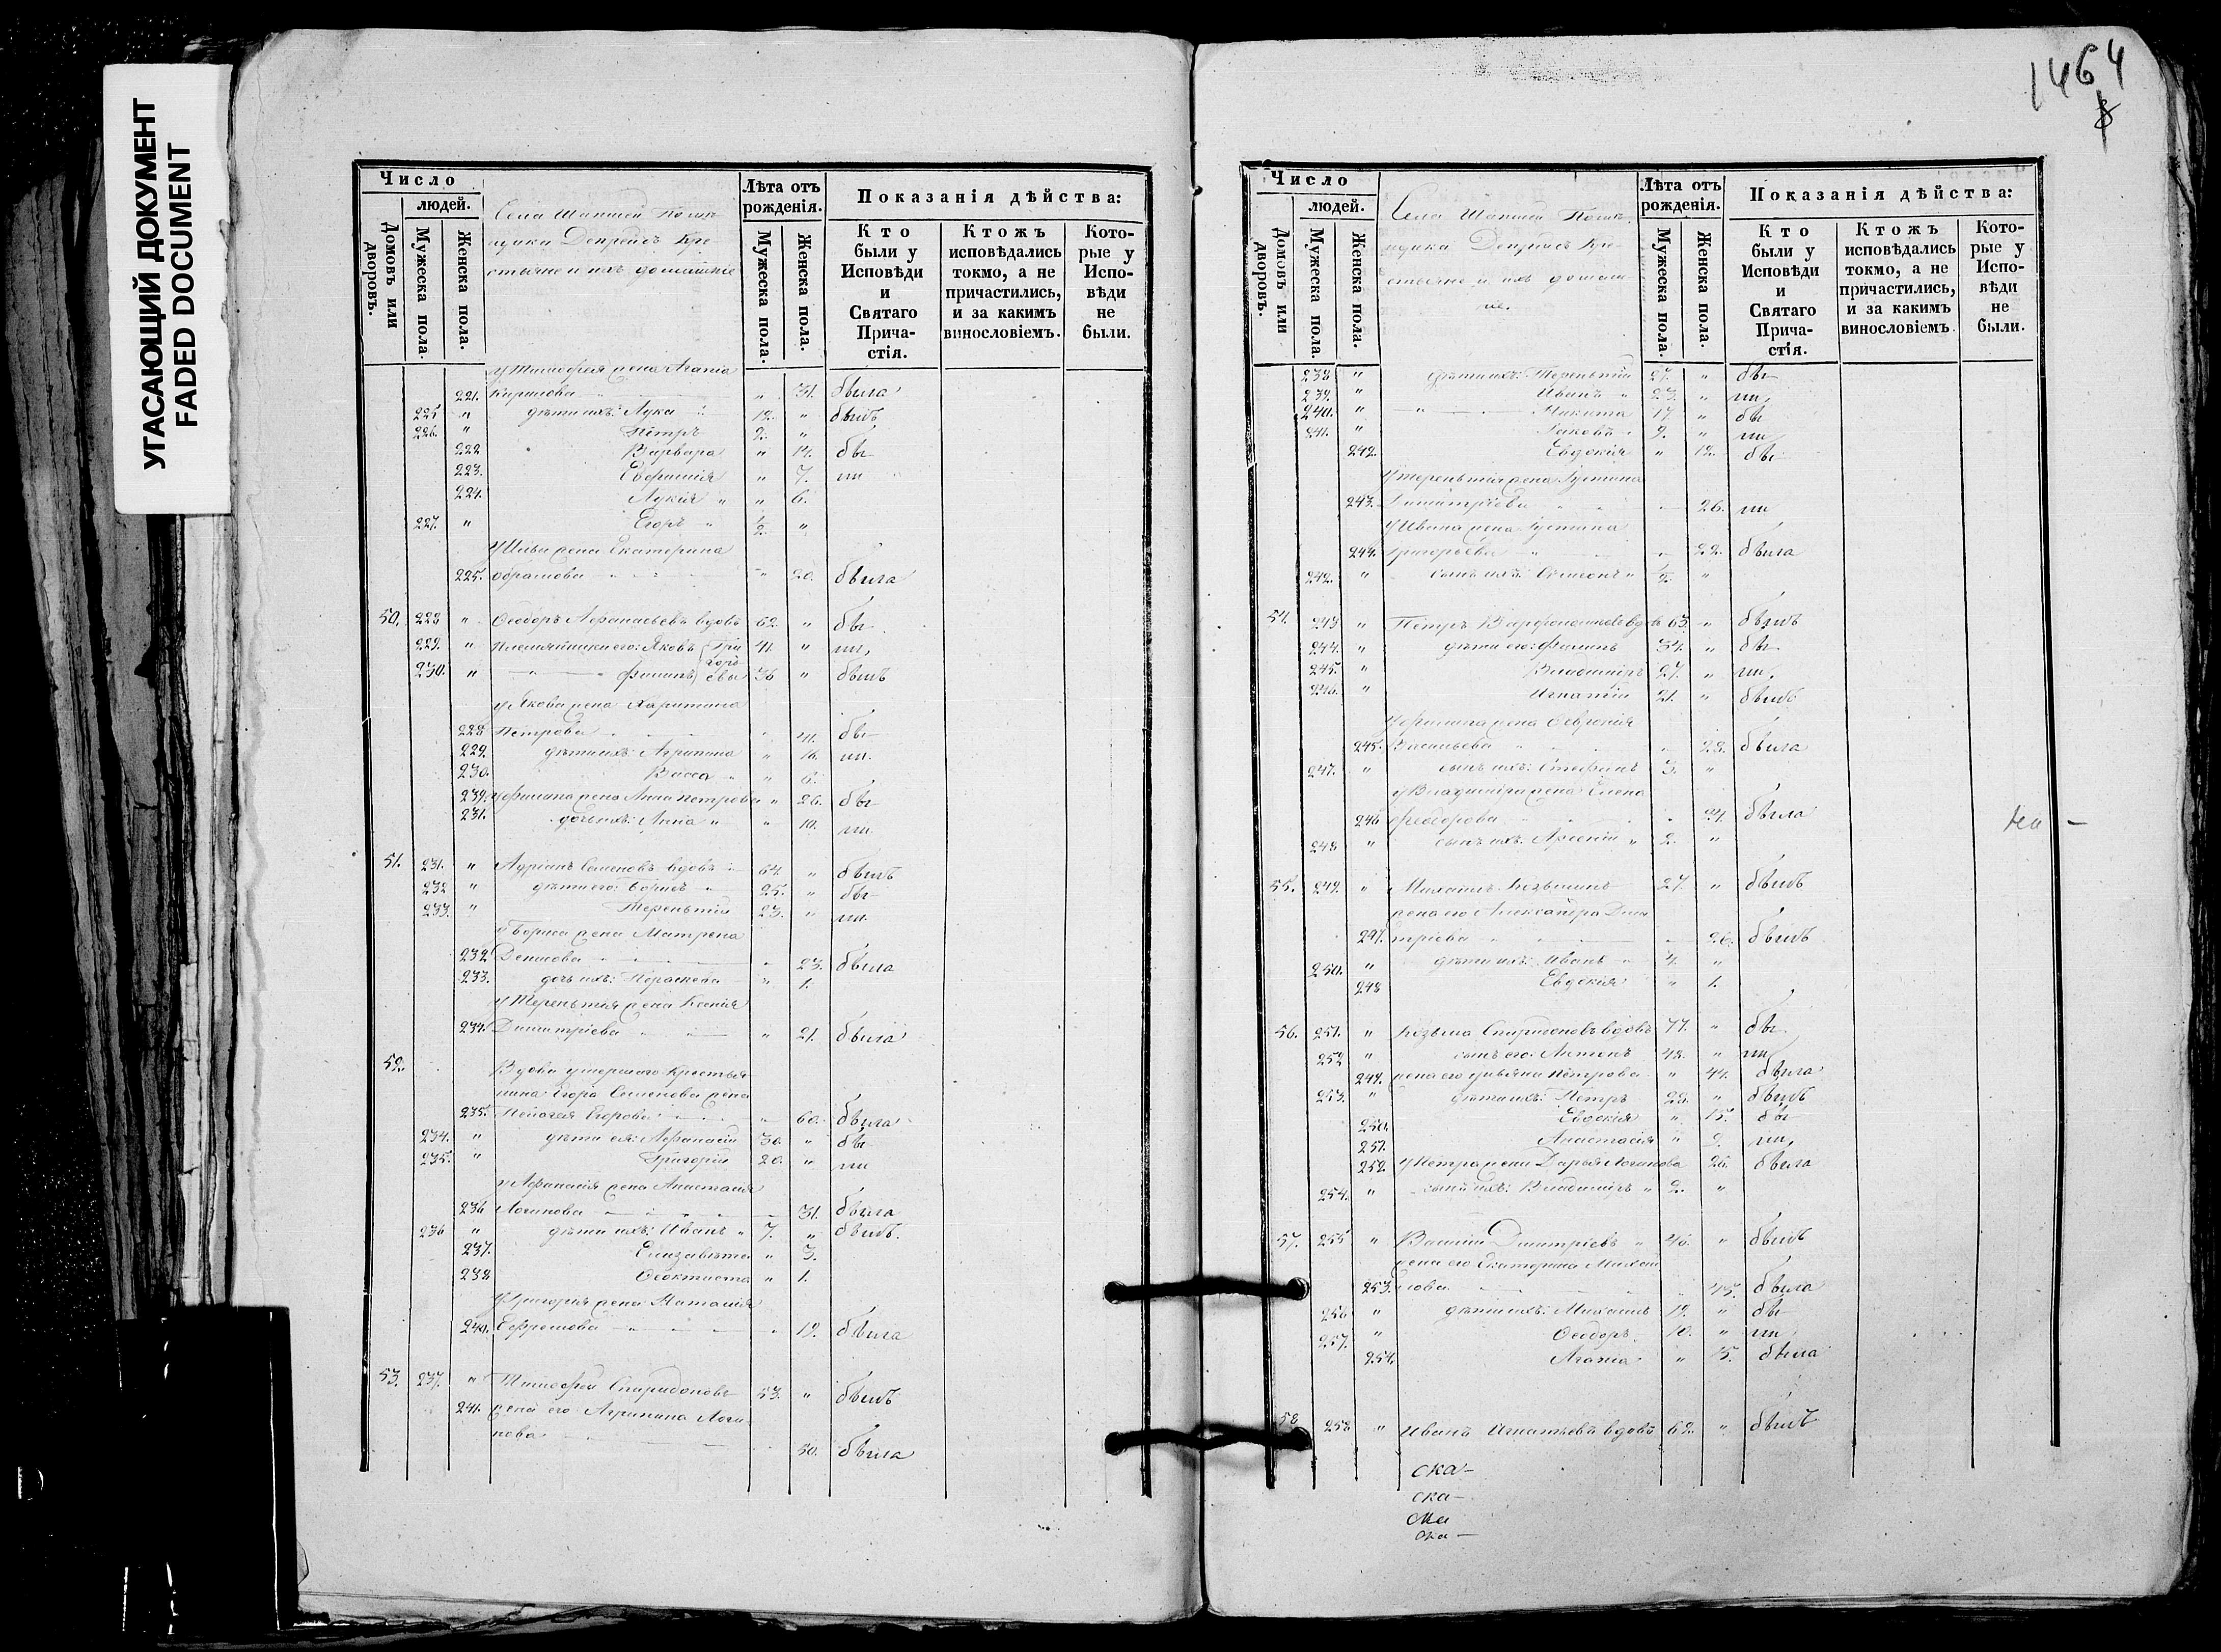 УГАСАЮЩИЙ ДОКУМЕНТ
FADED DOCUMENT
Число
людей.
Домовъ или дворовъ.
Мужеска пола.
Женска пола.
Села
Депрейсъ Кре-
стьяне и ихъ домашніе
Лѣта отъ рожденія.
Мужеска пола.
Женска пола.
Показанія дѣйства:
Кто были у Исповѣди и Святаго Прича-стія.
Ктожъ исповѣдались токмо, а не причастились, и за какимъ винословіемъ.
Кото-рые у Испо-вѣди не были.
у Тимофея жена Агапія
221. Кирилова " 31. была
225 " дѣти ихъ: Лука 12. " былъ
226. " Петръ 2. "
222 Варвара " 14. бы
223. Евфимія " 7. ли
224. Лукія " " 6.
227. " Егоръ 1/2 "
у Ильи жена Екатерина
225. " 20. была
50. 228 " Ѳеодоръ Аѳанасьевъ вдовъ 62. " бы
229. " Племянники его: Яковъ Гри 41. " ли,
230. " Филипъ горьевы 36 " былъ
у Якова жена Харитина
228 Петрова " 41. бы
229. дѣти ихъ: Агрипина " 16. ли.
230. Васса " " 6.
239. у Филипа жена Анна Петрова " 26. бы
231. дочь ихъ: Анна " " 10. ли
51. 231. " Адріанъ Семеновъ вдовъ 64. " былъ
232 " дѣти его: Борисъ 25. " бы
233. " Терентій 23. " ли.
у Бориса жена Матрена
232 Денисова " 23. была
233. дочь ихъ: " 1.
у Терентія жена Ксенія
234. Димитріева " 21. была
52. Вдова умершаго крестья
нина Егора Семенова жена
235. Пелагея Егорова " 60. была
234. " дѣти ея: Аѳанасій 30. " бы
235. " Григорій 20. " ли
у Аѳанасія жена Анастасія
236 Логинова 31. была
236 " дѣти ихъ: Иванъ " 7. " былъ.
237. Елизавета " 3.
238 Ѳеоктиста " 1.
у Григорія жена Наталія
240. Ефремова " 19. была
53. 237. " Тимофей Спиридоновъ 53. " былъ
241. жена его Агрипина Логи-
нова 50. была
1464
8
Число
людей.
Домовъ или дворовъ.
Мужеска пола.
Женска пола.
Села
Депрейсъ Кре-
стьяне и ихъ домаш-
ніе.
Лѣта отъ рожденія.
Мужеска пола.
Женска пола.
Показанія дѣйства:
Кто были у Исповѣди и Святаго Прича-стія.
Ктожъ исповѣдались токмо, а не причастились, и за какимъ винословіемъ.
Кото-рые у Испо-вѣди не были.
238 " дѣти ихъ: Терентій 27. " бы
239. " Иванъ " 23. " ли,
240. " Никита 17 " бы
241. " Іаковъ 9. " ли
242. Евдокія " 12. бы
у Терентія жена Іустина
243. Димитріева 26. ли
у Ивана жена Іустина
244. Григорьева 22. была
242. " сынъ ихъ: Симеонъ " 1/2. "
54. 243 " Петръ вдовъ 63. " былъ
244. " дѣти его: Филипъ 34. " бы
245. " Владиміръ 27. " ли,
246. " Игнатій 21. " былъ
у Филипа жена
245. Васильева " 28. была
247. " сынъ ихъ: Стефанъ 3. "
у Владиміра жена Елена
246 Феодорова 24. была
248 " сынъ ихъ: Арсеній " 2. "
55. 249. " Михаилъ Козьминъ 27. " былъ
жена его Александра Дими
247. тріева 26. былъ
250. " дѣти ихъ: Иванъ 4. "
248 Евдокія " 1.
56. 251. " Козьма Спиридоновъ вдовъ 77. " бы
252 " сынъ его: Антонъ 48. " ли
249. жена его Ульяна Петрова " 44. была
253. " дѣти ихъ: Петръ 28. " былъ
250. Евдокія " 15. бы
251. Анастасія " 9. ли,
252. у Петра жена Дарья Логинова 26. была
254. " сынъ ихъ: Владиміръ " 2. "
57. 255 " Василій Дмитріевъ " 46. " былъ
жена его Екатерина Михай
253. лова 45. была
256 " дѣти ихъ: Михаилъ 19. " бы
257. " Ѳеодоръ 10. " ли
254. Агафія " 15. была
58 258 " Иванъ Игнатьевъ вдовъ 62. " былъ
ска-
ска-
ска
ска-